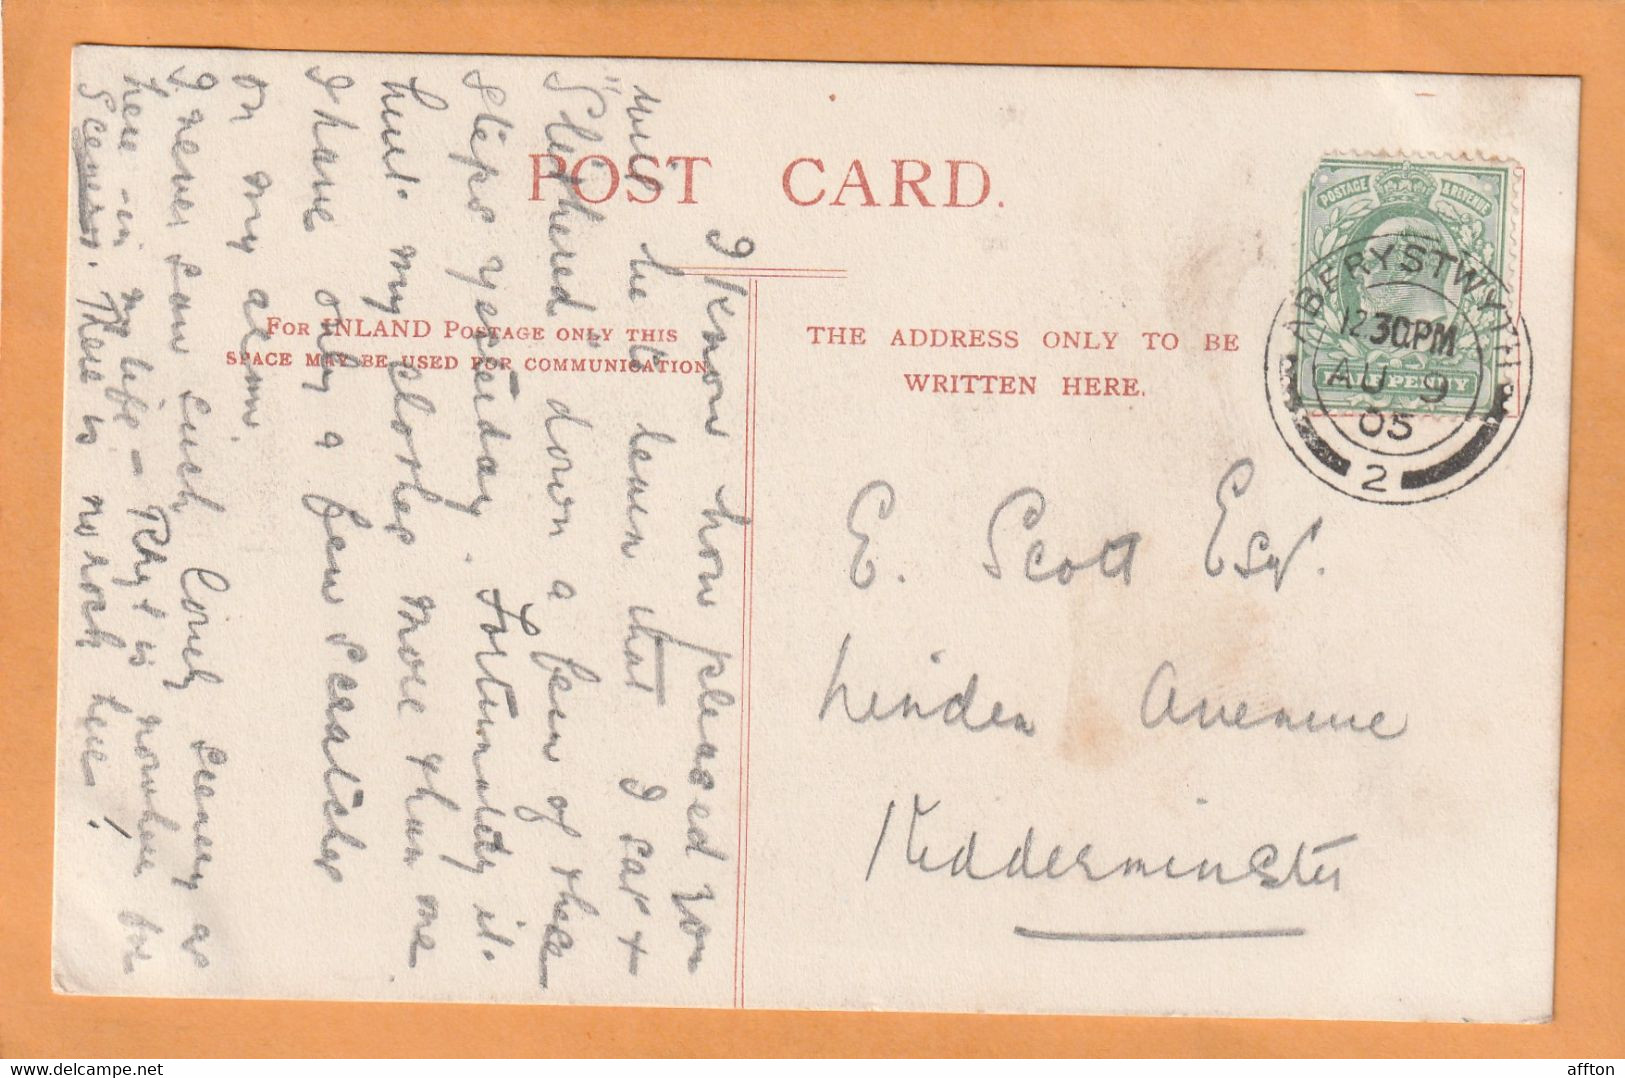 POST CARD.
FOR INLAND POSTAGE ONLY THIS
SPACE MAY BE USED FOR COMMUNICATION
THE ADDRESS ONLY TO BE
WRITTEN HERE.
POSTAGE & REVENUE
ABERYSTWYTH
12 30 PM
AU 9
05
2
E. Scott Esq.
Linden Avenue
Kidderminster
I know how pleased you
will be to learn that I sat &
"Slithered" down a few of these
steps yesterday. Fortunately it
hurt my clothes more than me
I have only a few scratches
on my arm.
I never saw such lovely scenery as
here in my life - Rhyl is nowhere for
scenery. There is no rock here!
affton